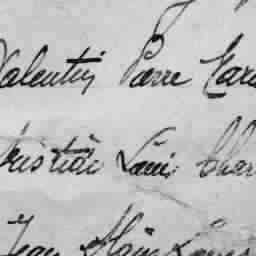 Valentin Pierre Mar
Christian Louis Char
Jean Alain Louis